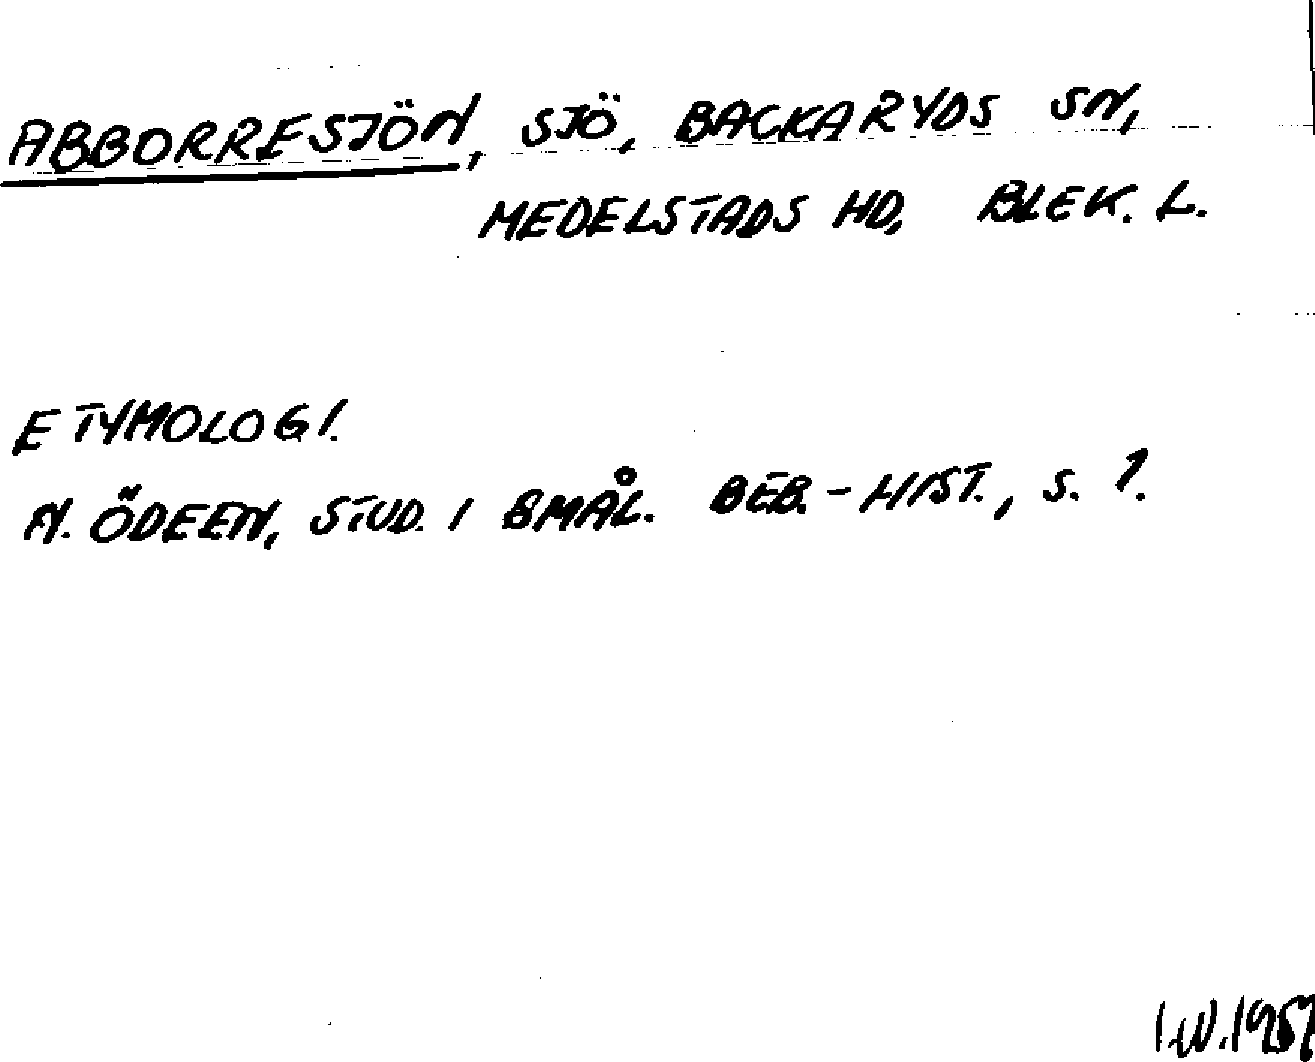 ABBORRESJÖN, SJÖ, BACKARYDS SN,
MEDELSTADS HD, BLEK. L.
ETYMOLOGI.
N. ÖDEEN, STUD. I SMÅL. BEB.-HIST., S. 7.
I.W. 1957